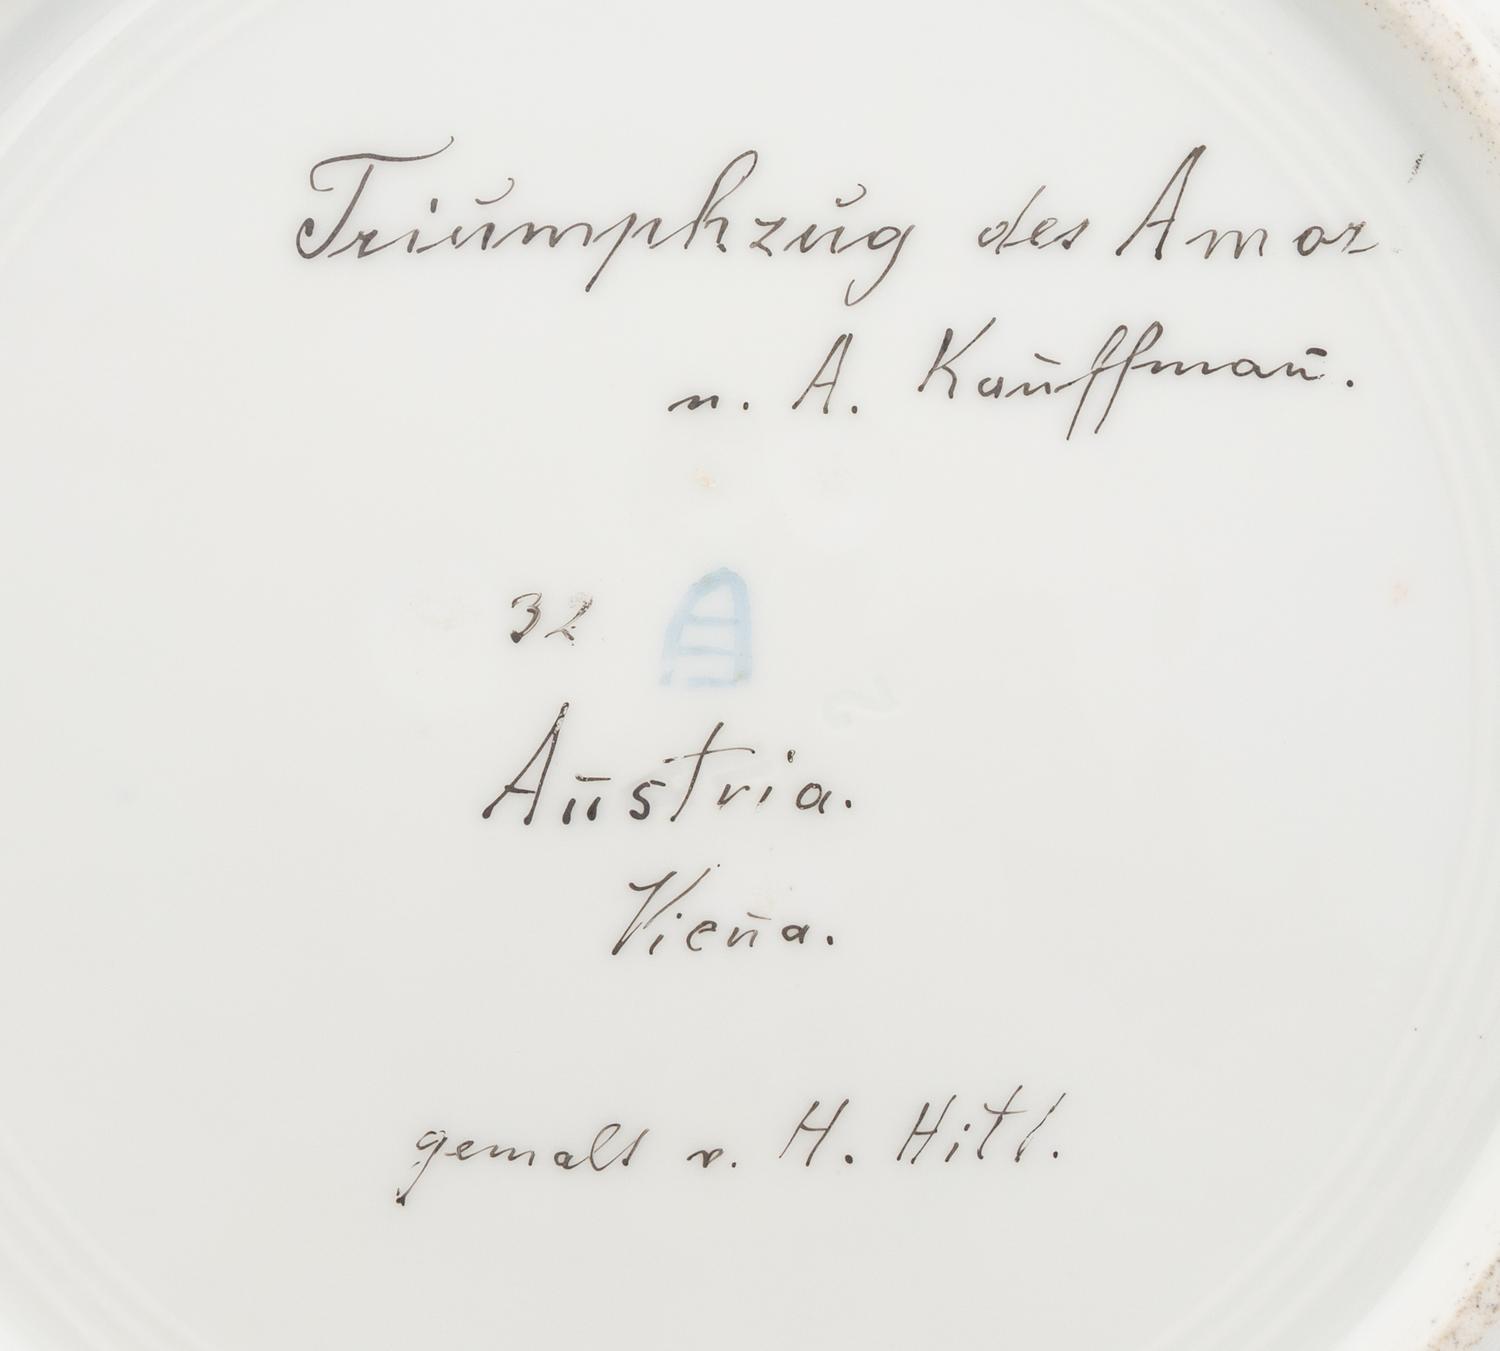 Triumphzug des Amor
n. A. Kauffman̄.
32
Austria.
Vien̄a.
gemalt v. H. Hitl.